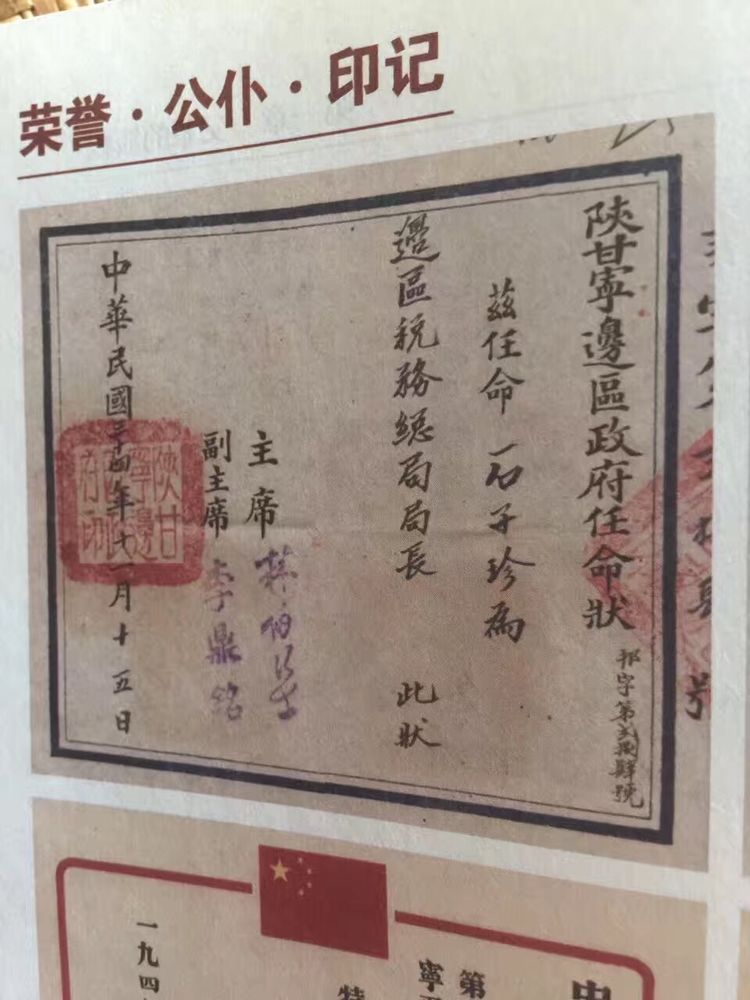 荣誉·公仆·印记
陝甘寧邊區政府任命狀
邦字第貳捌肆號
茲任命石子珍為
邊區税務總局局長
此狀
主席 林伯渠
副主席 李鼎銘
中華民國三十四年十一月十五日
陝甘寧邊區政府印
號
中
第
寧
特
一九四